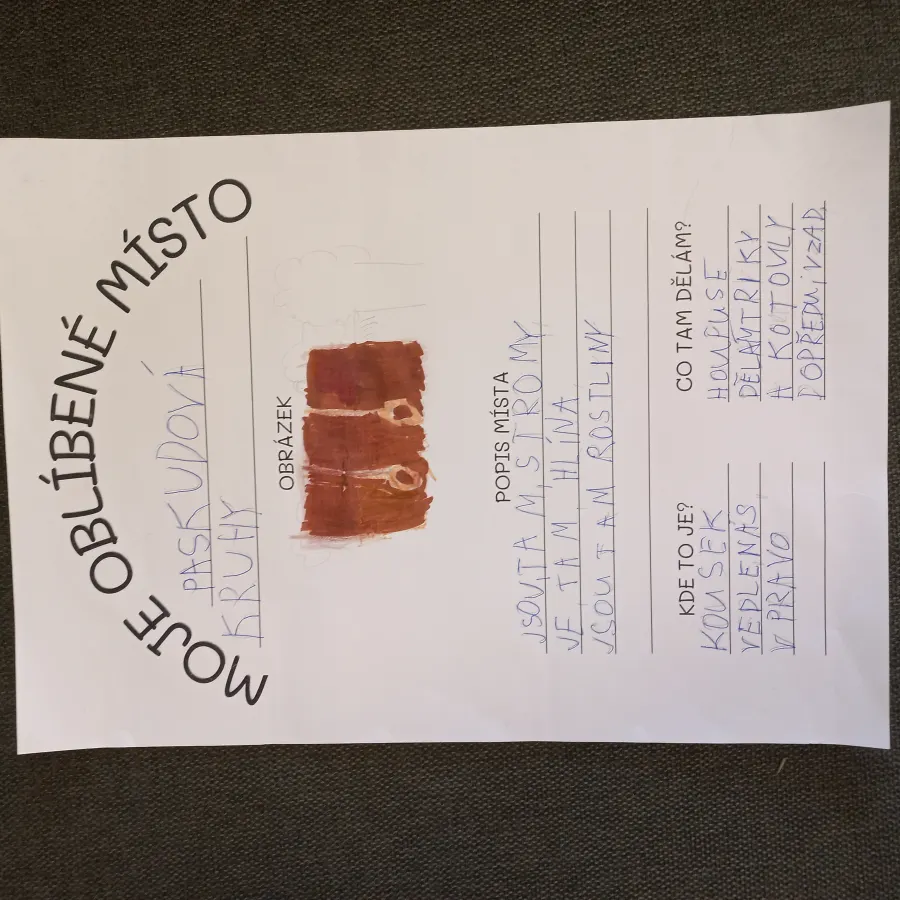 MOJE OBLÍBENÉ MÍSTO
PASKUDOVÁ
KRUHY
OBRÁZEK
POPIS MÍSTA
JSOUTAM, STROMY
JE TAM HLÍNA
JSOU TAM ROSTLINY
KDE TO JE?
KOUSEK
VEDLENÁS,
V PRAVO
CO TAM DĚLÁM?
HOUPUSE
DĚLÁMTRIKY
A KOTOULY
DOPŘEDU, VZAD,